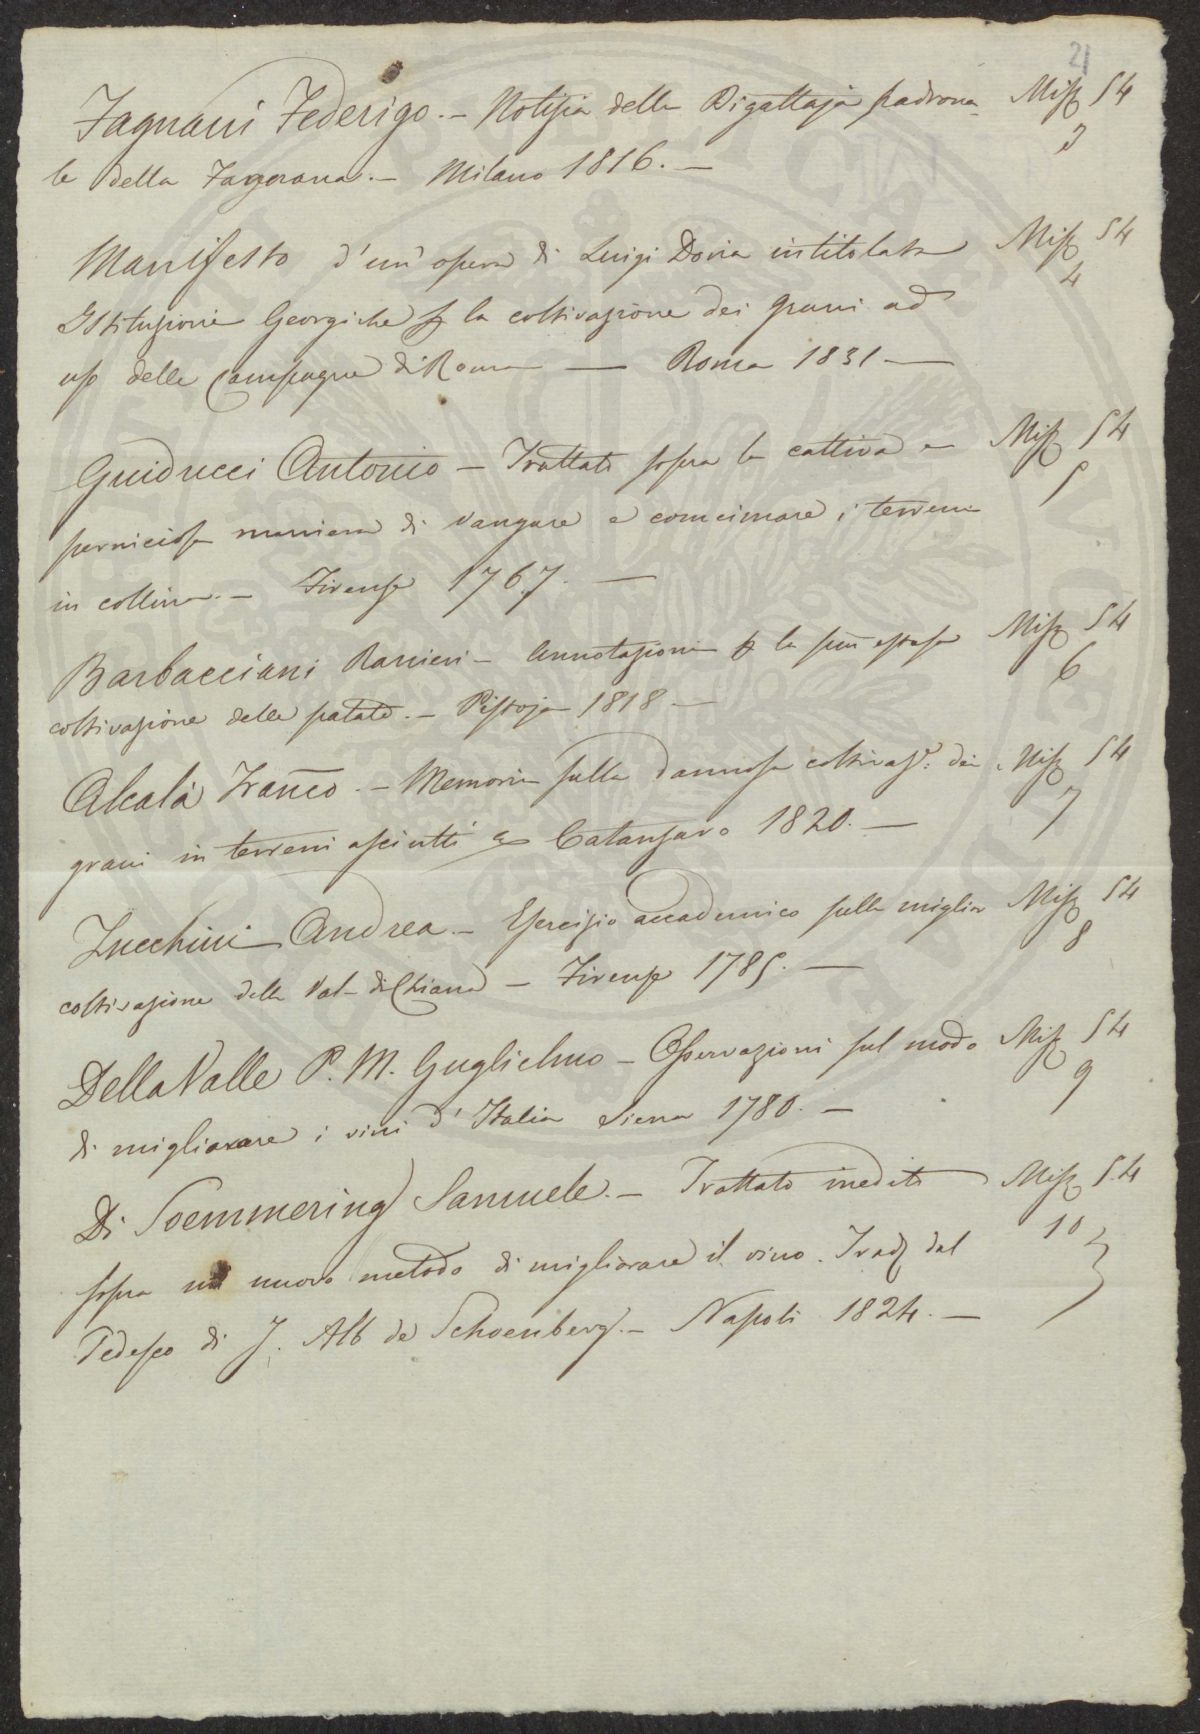 21
Fagnani Federigo. – Notizia della Bigattaja padrona- Misz 54
le della Fagnana. – Milano 1816. – 3
Manifesto d'un'opera di Luigi Doria intitolata Misz 54
Istituzioni Georgiche p la coltivazione dei grani ad 4
uso delle Campagne di Roma — Roma 1831 —
Guiducci Antonio – Trattato sopra la cattiva e Misz 54
perniciosa maniera di vangare e concimare i terreni 5
in collina. – Firenze 1767. —
Barbacciani Ranieri – Annotazioni p la più estesa Misz 54
coltivazione delle patate. – Pistoja 1818 — 6
Alcalà Franco. – Memoria sulla dannosa coltivaze. dei Misz 54
grani in terreni asciutti Catanzaro 1820. — 7
Zucchini Andrea – Esercizio accademico sulla miglior Misz 54
coltivazione della Val-di Chiana – Firenze 1785. — 8
Della Valle P. M. Guglielmo – Osservazioni sul modo Misz 54
di migliorare i vini d'Italia Siena 1780. – 9
Di Soemmering Samuele. – Trattato inedito Misz 54
sopra un nuovo metodo di migliorare il vino. Trad dal 10
Tedesco di J. Alb de Schoenberg. – Napoli 1824. —